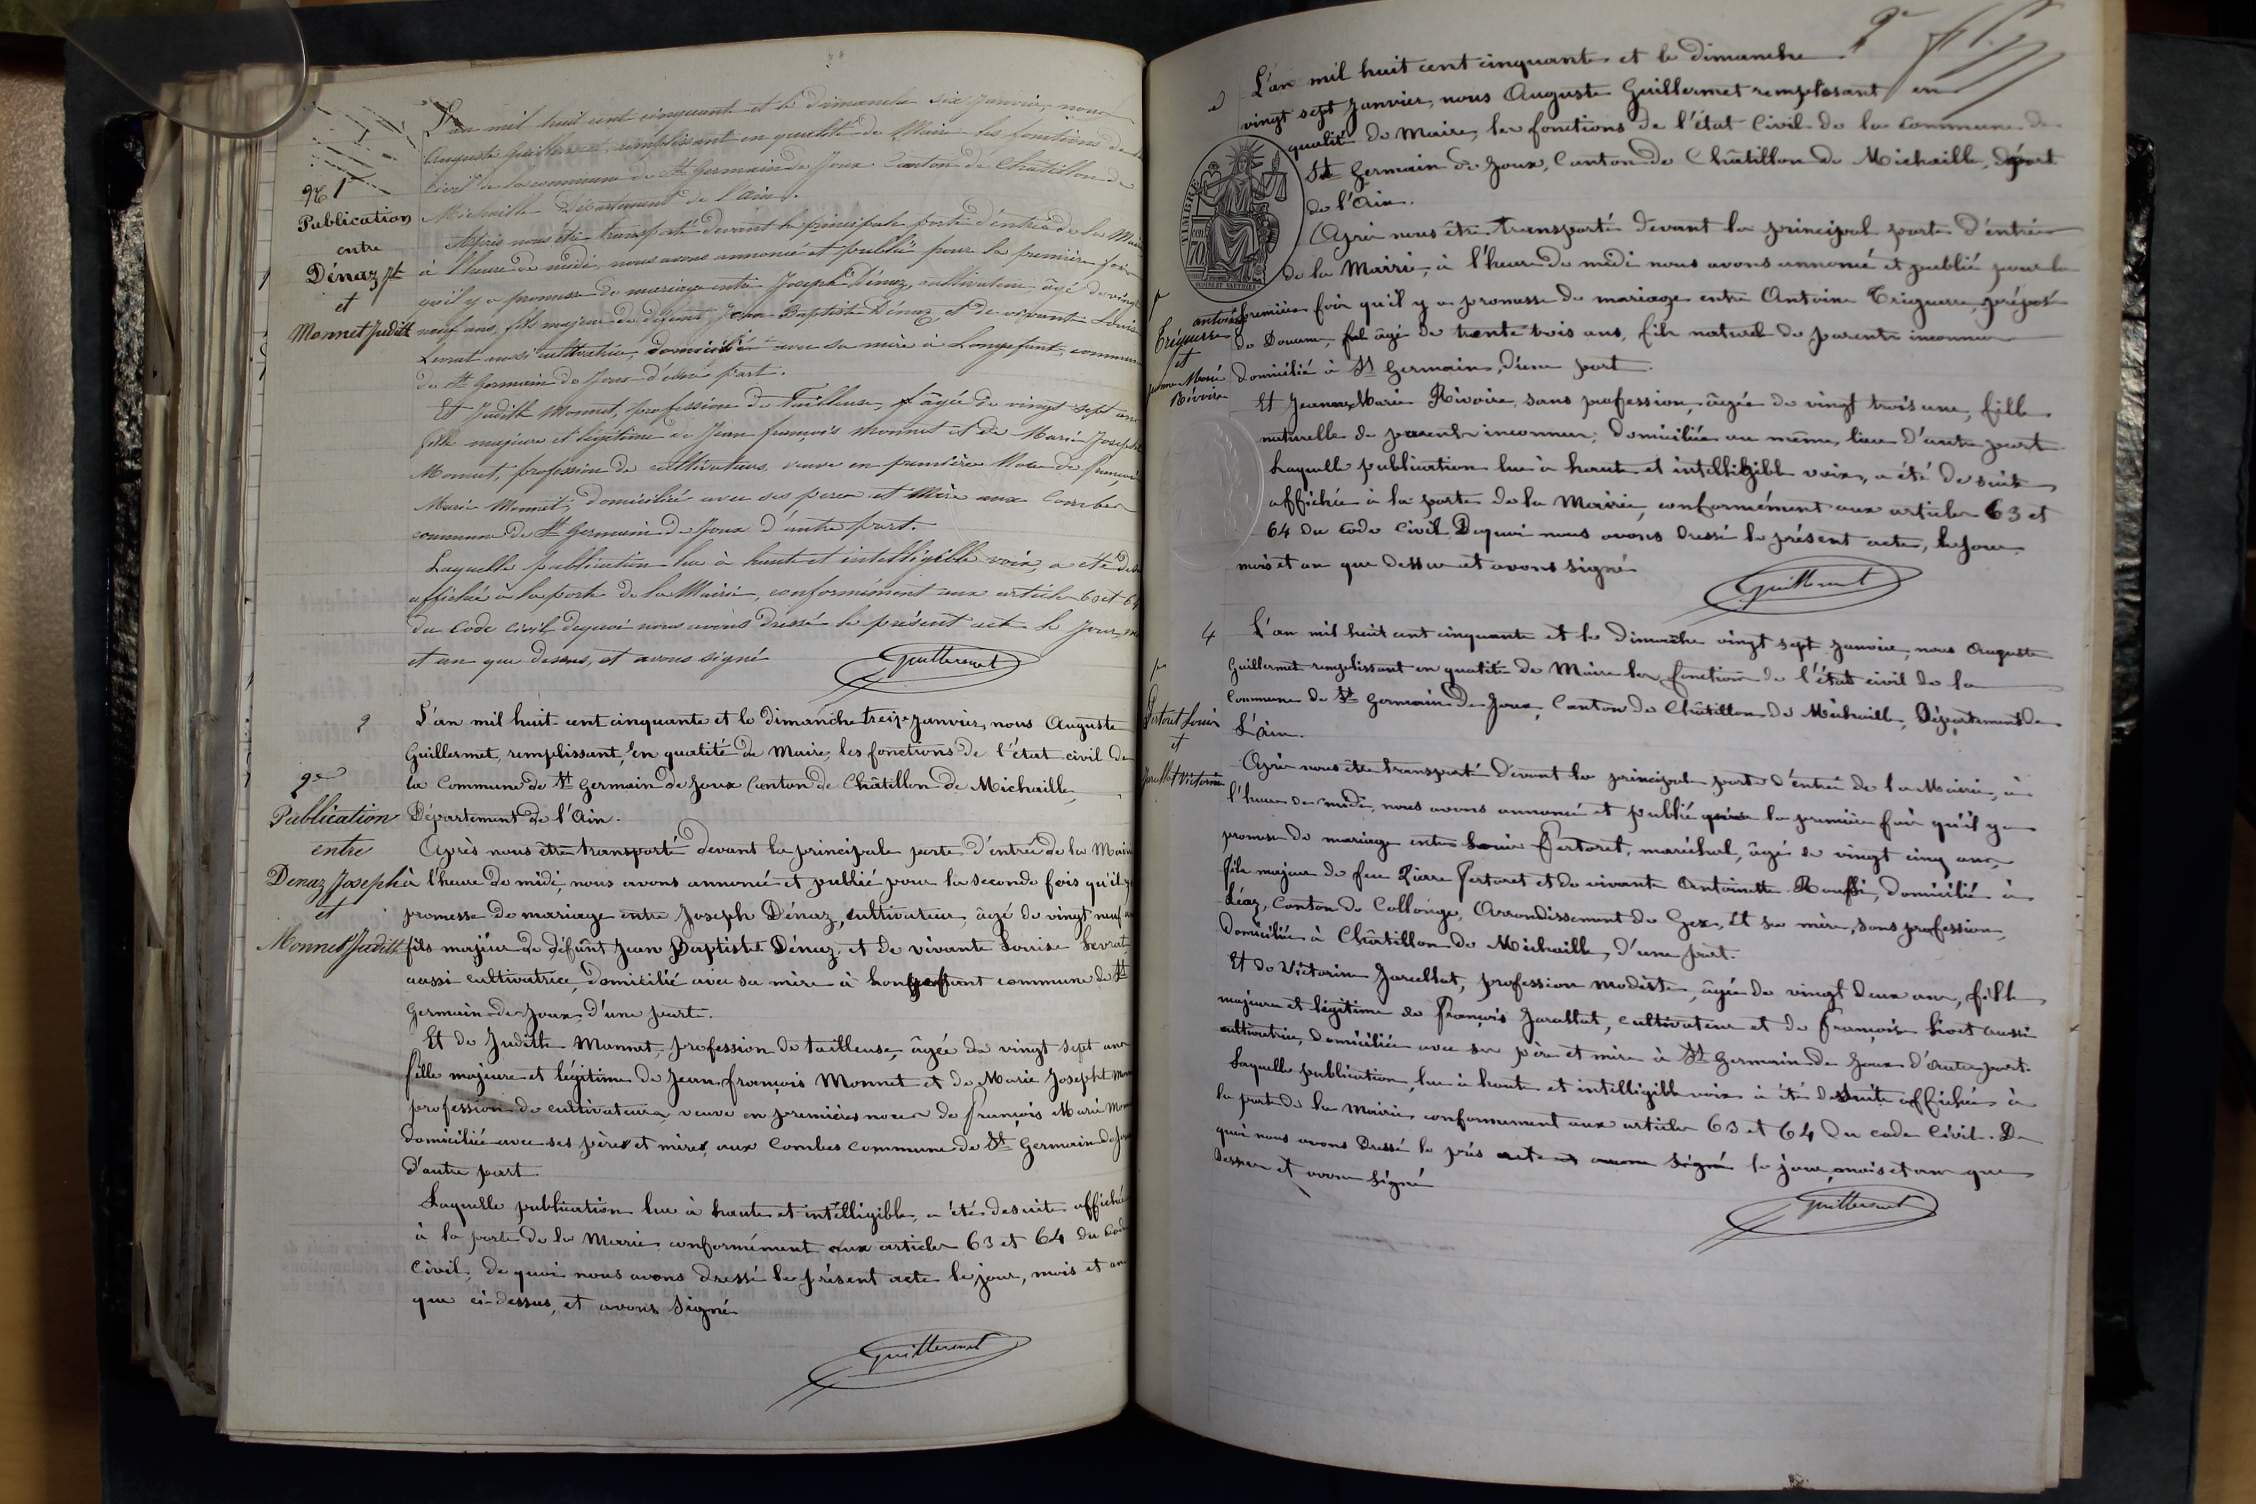 L'an mil huit cent cinquante et le dimanche six Janvier, nous
Auguste Guillermet remplissant en qualité de Maire les fonctions de
civil de la commune de St Germain de Joux Canton de Châtillon de
Michaille Département de l'Ain.
N° 1
Publication
entre
Dénaz pt
et
Monnet Judith
Après nous être transporté devant la principale porte d'entrée de la Mairie
à l'heure de midi, nous avons annoncé et publié pour la première fois
qu'il y a promesse de mariage entre Joseph Dénaz, cultivateur âgé de vingt
neuf ans, fils majeur de défunt Jean Baptiste Dénaz, et de vivante Louise
Levrat aussi cultivatrice, domicilié avec sa mère à Longefant, commune
de St Germain de Joux d'une part.
Et Judith Monnet, profession de Tailleuse, âgée de vingt sept ans
fille majeure et légitime de Jean françois Monnet et de Marie Josephte
Monnet, profession de cultivateurs, veuve en première Noce de françois
Marie Monnet, domiciliée avec ses père et Mère aux Combes
commune de St Germain de Joux d'autre part.
Laquelle publication lue à haute et intelligible voix, a été de
affichée à la porte de la Mairie, conformément aux articles 63 et 64
du Code civil dequoi nous avons dressé le présent acte le Jour, m
et an que dessus, et avons signé
Guillermet
2
L'an mil huit cent cinquante et le dimanche treize Janvier, nous Auguste
Guillermet, remplissant, en qualité de Maire, les fonctions de l'état civil de
la Commune de St Germain de Joux Canton de Châtillon de Michaille,
Département de l'Ain.
2e
Publication
entre
Denaz Joseph
et
Monnet Judith
Après nous être transporté devant la principale porte d'entrée de la Mairie
à l'heure de midi, nous avons annoncé et publié pour la seconde fois qu'il y
promesse de mariage entre Joseph Dénaz, cultivateur, âgé de vingt neuf
fils majeur de défunt Jean Baptiste Dénaz, et de vivante Louise Levrat,
aussi cultivatrice, domicilié avec sa mère à Longefant commune de St
Germain de Joux, d'une part.
Et de Judith Monnet, profession de tailleuse, âgée de vingt sept ans
fille majeure et légitime de Jean françois Monnet et de Marie Josepht
profession de cultivateurs, veuve en premières noces de françois Marie
domiciliée avec ses pères et mères, aux Combes commune de St Germain de
d'autre part
Laquelle publication lue à haute et intelligible, a été desuite affichée
à la porte de la Mairie conformément aux articles 63 et 64 du Code
Civil, de quoi nous avons dressé le présent acte le jour, mois et an
que ci-dessus, et avons signé
Guillermet
L'an mil huit cent cinquante et le dimanche
vingt sept Janvier, nous Auguste Guillermet remplissant en
qualité de Maire, les fonctions de l'état Civil de la commune de
St Germain de Joux, Canton de Châtillon de Michaille, dépt
de l'Ain.
TIMBRE
70
Après nous être transporté devant la principal porte d'entrée
de la Mairie, à l'heure de midi nous avons annoncé et publié pour la
première foix qu'il y a promesse de mariage entre Antoine Tréguerre, préposé
de Douane, âgé de trente trois ans, fils naturel de parents inconnus
domicilié à St Germain, d'une part.
antoine
Tréguerre
et
Jeanne Marie
Rivoire
Et Jeanne Marie Rivoire, sans profession, âgée de vingt trois ans, fille
naturelle de parents inconnus, domiciliée au même, lieu d'autre part
Laquelle publication lue à haute et intelligible voix, a été de suite
affichée à la porte de la Mairie, conformément aux articles 63 et
64 du Code Civil. Dequoi nous avons dressé le présent acte, le Jour
mois et an que dessus et avons signé
Guillermet
4
L'an mil huit cent cinquante et le Dimanche vingt sept Janvier, nous Auguste
Guillermet remplissant en qualité de Maire les fonctions de l'état civil de la
Commune de St Germain de Joux, Canton de Châtillon de Michaille, Département de
L'ain.
Pertoret Louis
et
Jarallat Victorine
Après nous être transporté devant la principale porte d'entrée de la Mairie, à
l'heure de midi, nous avons annoncé et publié pour la première foix qu'il y a
promesse de mariage entre Louis Pertoret, maréchal, âgé de vingt cinq ans,
fils majeur de feu Pierre Pertoret et de vivante Antoinette Rouffi, domicilié à
Léaz, Canton de Collonge, Arrondissement de Gex, et sa mère, sans profession,
Domiciliée à Châtillon de Michaille, d'une part.
Et de Victorine Jarallat, profession modiste, âgée de vingt deux ans, fille
majeure et légitime de François Jarallat, cultivateur et de François Livet aussi
cultivatrice, domiciliée avec ses père et mère à St Germain de Joux d'autre part.
Laquelle publication, lue à haute et intelligible voix à été de suite affichée à
la porte de la Mairie conformement aux articles 63 et 64 Du code Civil. De
quoi nous avons dressé le prés acte et avons signé le jour, mois et an que
dessus et avons signé
Guillermet